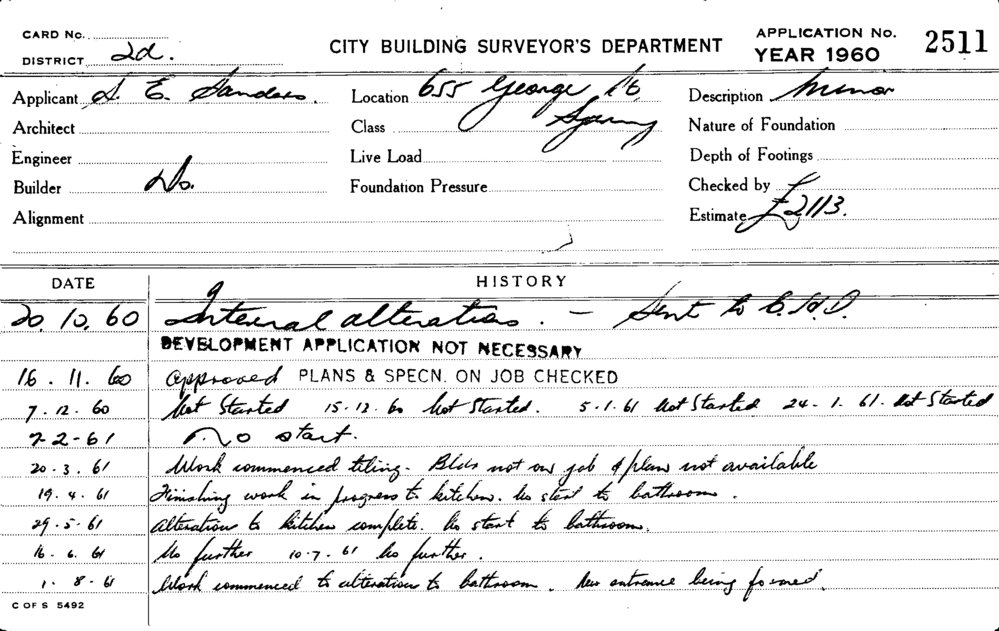 CARD No.
DISTRICT 2d.
CITY BUILDING SURVEYOR'S DEPARTMENT
APPLICATION No.
YEAR 1960
2511
Applicant S. E. Sanders. Location 655 George St. Description Minor
Architect Class Sydney Nature of Foundation
Engineer Live Load Depth of Footings
Builder Do. Foundation Pressure Checked by
Alignment Estimate £2113.
DATE HISTORY
20.10.60 Internal alterations. - Sent to C.H.D.
DEVELOPMENT APPLICATION NOT NECESSARY
16.11.60 Approved PLANS & SPECN. ON JOB CHECKED
7.12.60 Not Started 15.12.60 Not Started. 5.1.61 Not Started 24.1.61. Not Started
2-2-61 No start.
20.3.61 Work commenced tiling. Bldr not on job & plan not available
19.4.61 Finishing work in progress to kitchen. No start to bathroom.
29.5.61 Alteration to kitchen complete. No start to bathroom.
16.6.61 No further 10.7.61 No further.
1.8.61 Work commenced to alteration to bathroom. New entrance being formed.
C OF S 5492